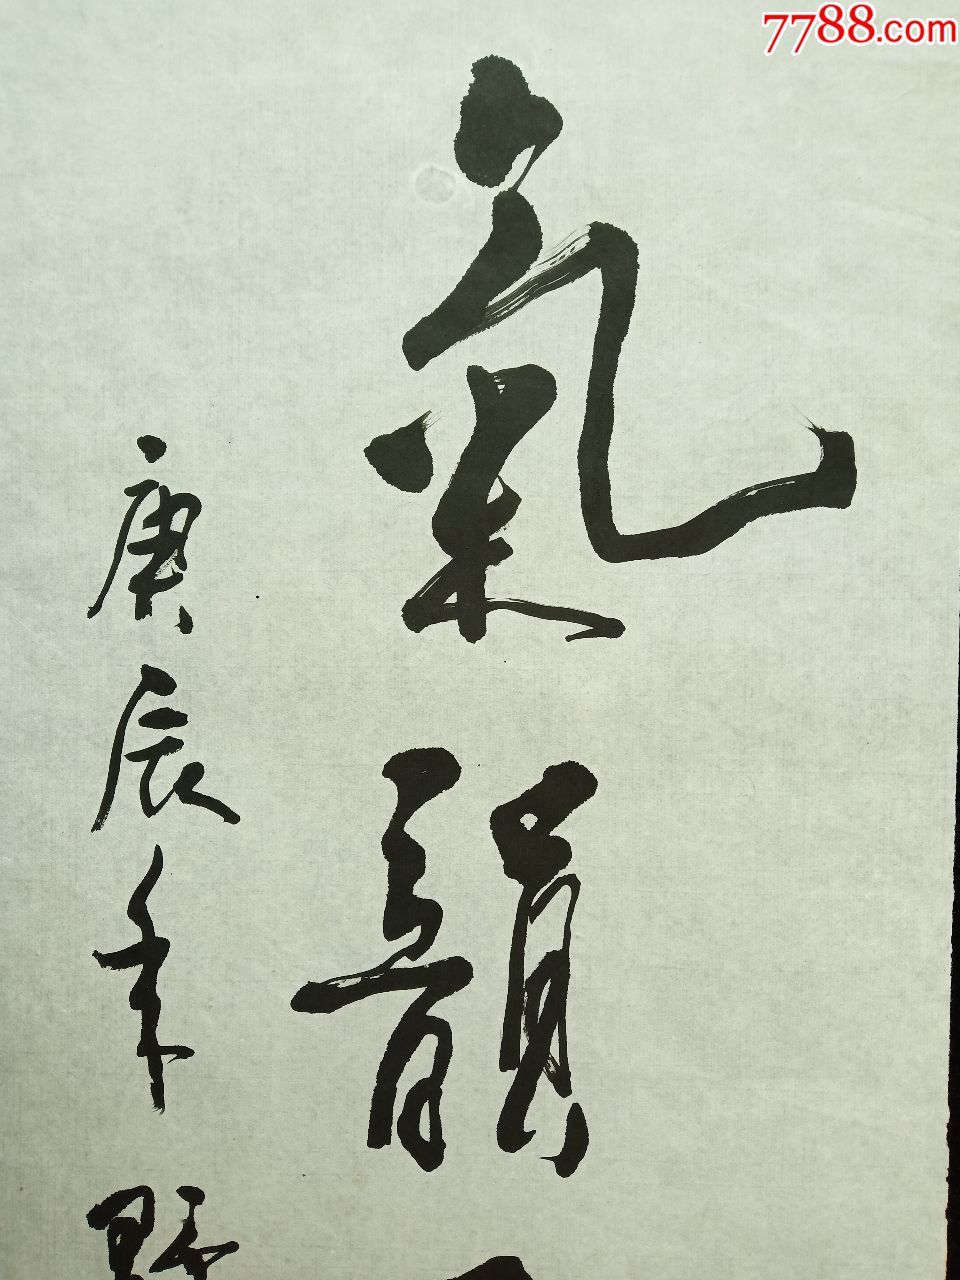 7788.com
氣韻
庚辰年